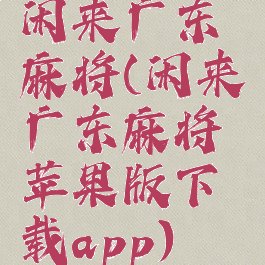 闲来广东
麻将(闲来
广东麻将
苹果版下
载app)